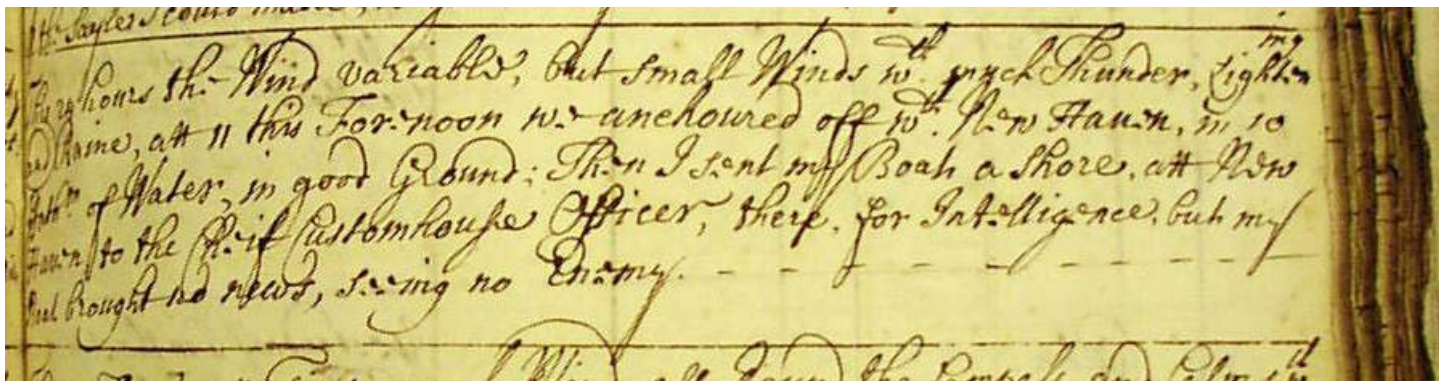 the Saylers could make,
This 24 hours the Wind variable, but small Winds wth. much Thunder, Lightening
and Raine, att 11 this Forenoon we anchoured off wth. New Haven, in 10
Fathm of Water, in good Ground; Then I sent my Boate a Shore, att New
Haven to the Cheif Customhouse Officer, there, for Intelligence, but my
Boat brought no news, seeing no Enemy.
Wind att Down the